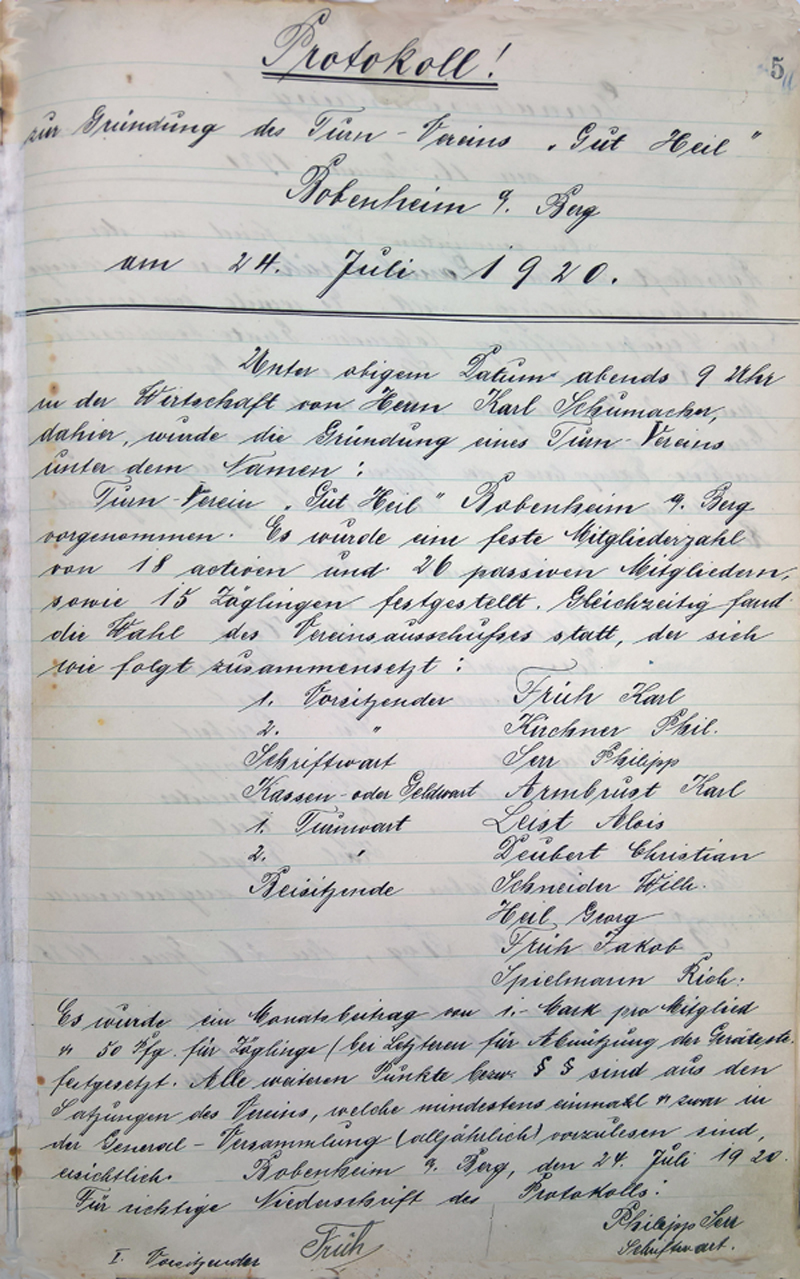 Protokoll!
5
zur Gründung des Turn-Vereins „Gut Heil"
Bobenheim a. Berg
am 24. Juli 1920.
Unter obigem Datum abends 9 Uhr
in der Wirtschaft von Herrn Karl Schumacher,
dahier, wurde die Gründung eines Turn-Vereins
unter dem Namen:
Turn-Verein „Gut Heil" Bobenheim a. Berg
vorgenommen. Es wurde eine feste Mitgliederzahl
von 18 activen und 26 passiven Mitgliedern,
sowie 15 Zöglingen festgestellt. Gleichzeitig fand
die Wahl des Vereinsausschußes statt, der sich
wie folgt zusammensetzt:
1. Vorsitzender Früh Karl
2. " Kirchner Phil.
Schriftwart Serr Philipp
Kassen- oder Geldwart Armbrust Karl
1. Turnwart Leist Alois
2. " Deubert Christian
Beisitzende Schneider Wilh.
Heil Georg
Früh Jakob
Spielmann Rich.
Es wurde ein Monatsbeitrag von 1.- Mark pro Mitglied
u 50 Pfg. für Zöglinge (bei Letzteren für Abnützung der Geräte etc.
festgesetzt. Alle weiteren Punkte bezw. § § sind aus den
Satzungen des Vereins, welche mindestens einmahl u zwar in
der General-Versammlung (alljährlich) vorzulesen sind,
ersichtlich. Bobenheim a. Berg, den 24. Juli 1920.
Für richtige Niederschrift des Protokolls:
Philipp Serr
Schriftwart.
I. Vorsitzender Früh